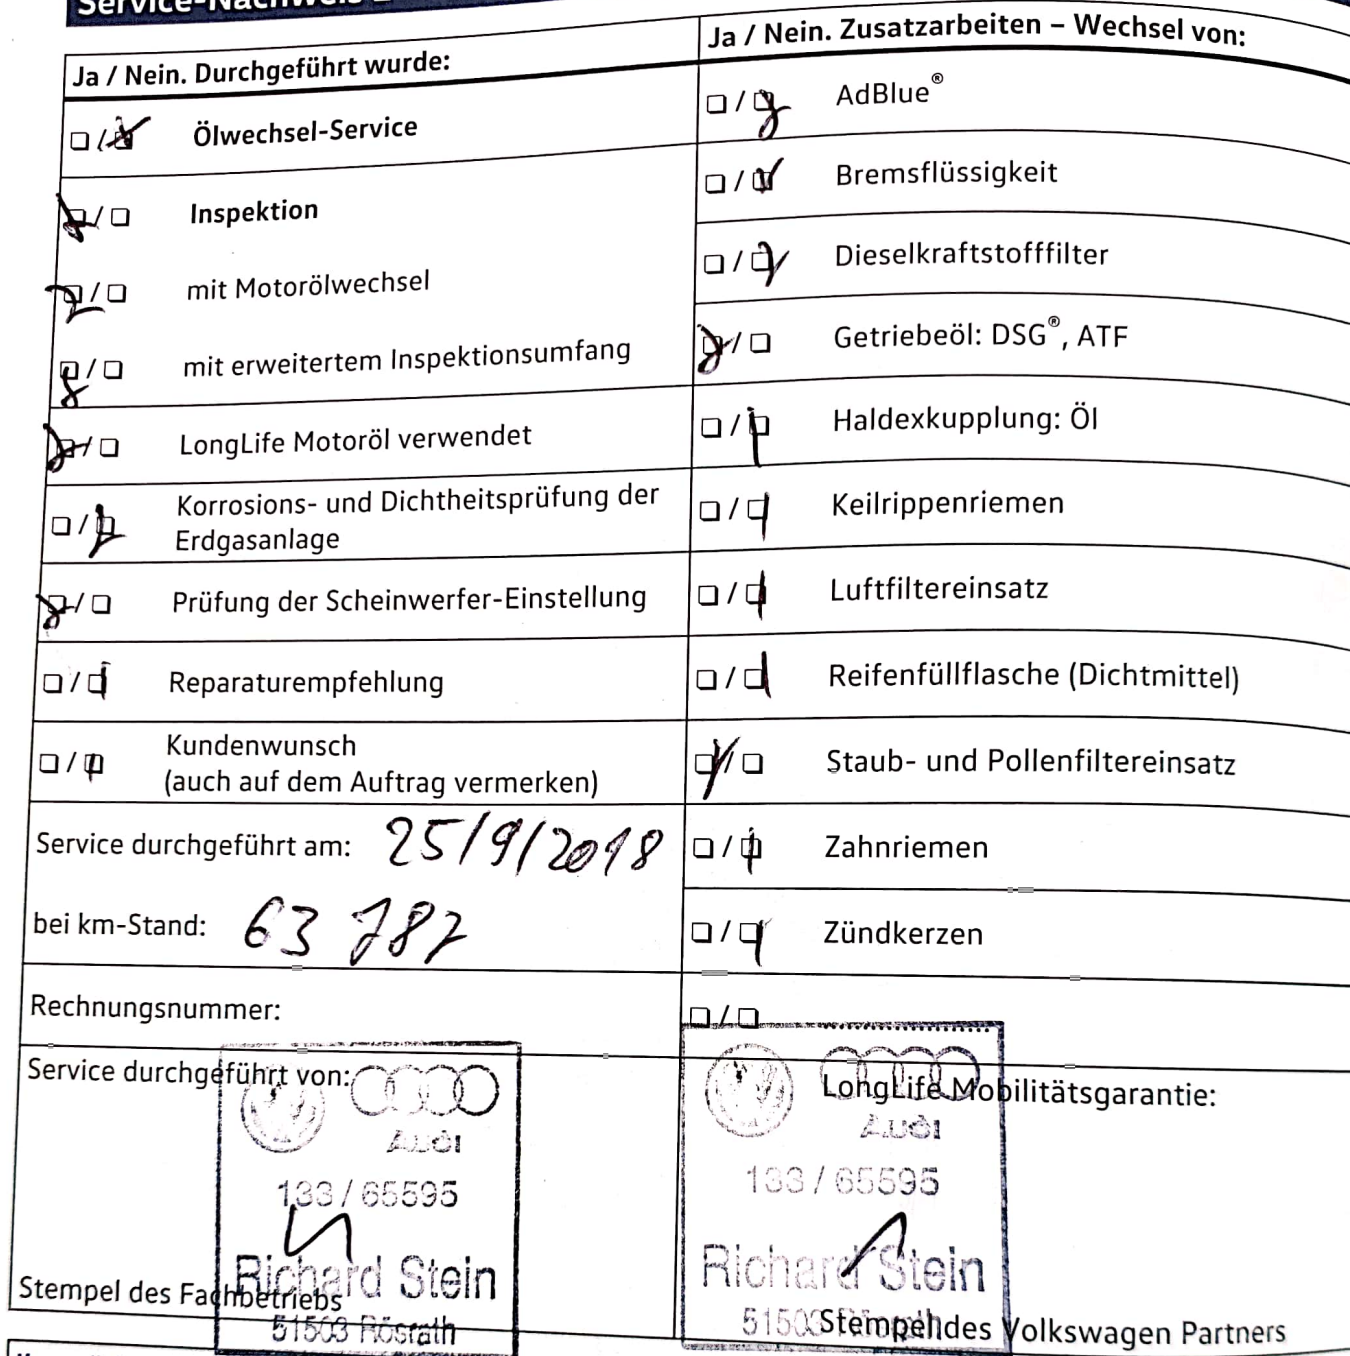 Service-Nachweis
Ja / Nein. Durchgeführt wurde:
☐ / ☒ Ölwechsel-Service
☒ / ☐ Inspektion
☒ / ☐ mit Motorölwechsel
☒ / ☐ mit erweitertem Inspektionsumfang
☒ / ☐ LongLife Motoröl verwendet
☐ / ☒ Korrosions- und Dichtheitsprüfung der
Erdgasanlage
☒ / ☐ Prüfung der Scheinwerfer-Einstellung
☐ / ☒ Reparaturempfehlung
☐ / ☒ Kundenwunsch
(auch auf dem Auftrag vermerken)
Service durchgeführt am: 25/9/2018
bei km-Stand: 63 787
Rechnungsnummer:
Service durchgeführt von:
Audi
133 / 65595
Richard Stein
Stempel des Fachbetriebs
51503 Rösrath
Ja / Nein. Zusatzarbeiten – Wechsel von:
☐ / ☒ AdBlue®
☐ / ☒ Bremsflüssigkeit
☐ / ☒ Dieselkraftstofffilter
☒ / ☐ Getriebeöl: DSG®, ATF
☐ / ☒ Haldexkupplung: Öl
☐ / ☒ Keilrippenriemen
☐ / ☒ Luftfiltereinsatz
☐ / ☒ Reifenfüllflasche (Dichtmittel)
☒ / ☐ Staub- und Pollenfiltereinsatz
☐ / ☒ Zahnriemen
☐ / ☒ Zündkerzen
☐ / ☐
LongLife Mobilitätsgarantie:
Audi
133 / 65595
Richard Stein
51503
Stempel des Volkswagen Partners